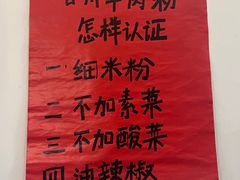 羊肉粉
怎样认证
一 细米粉
二 不加素菜
三 不加酸菜
四 油辣椒